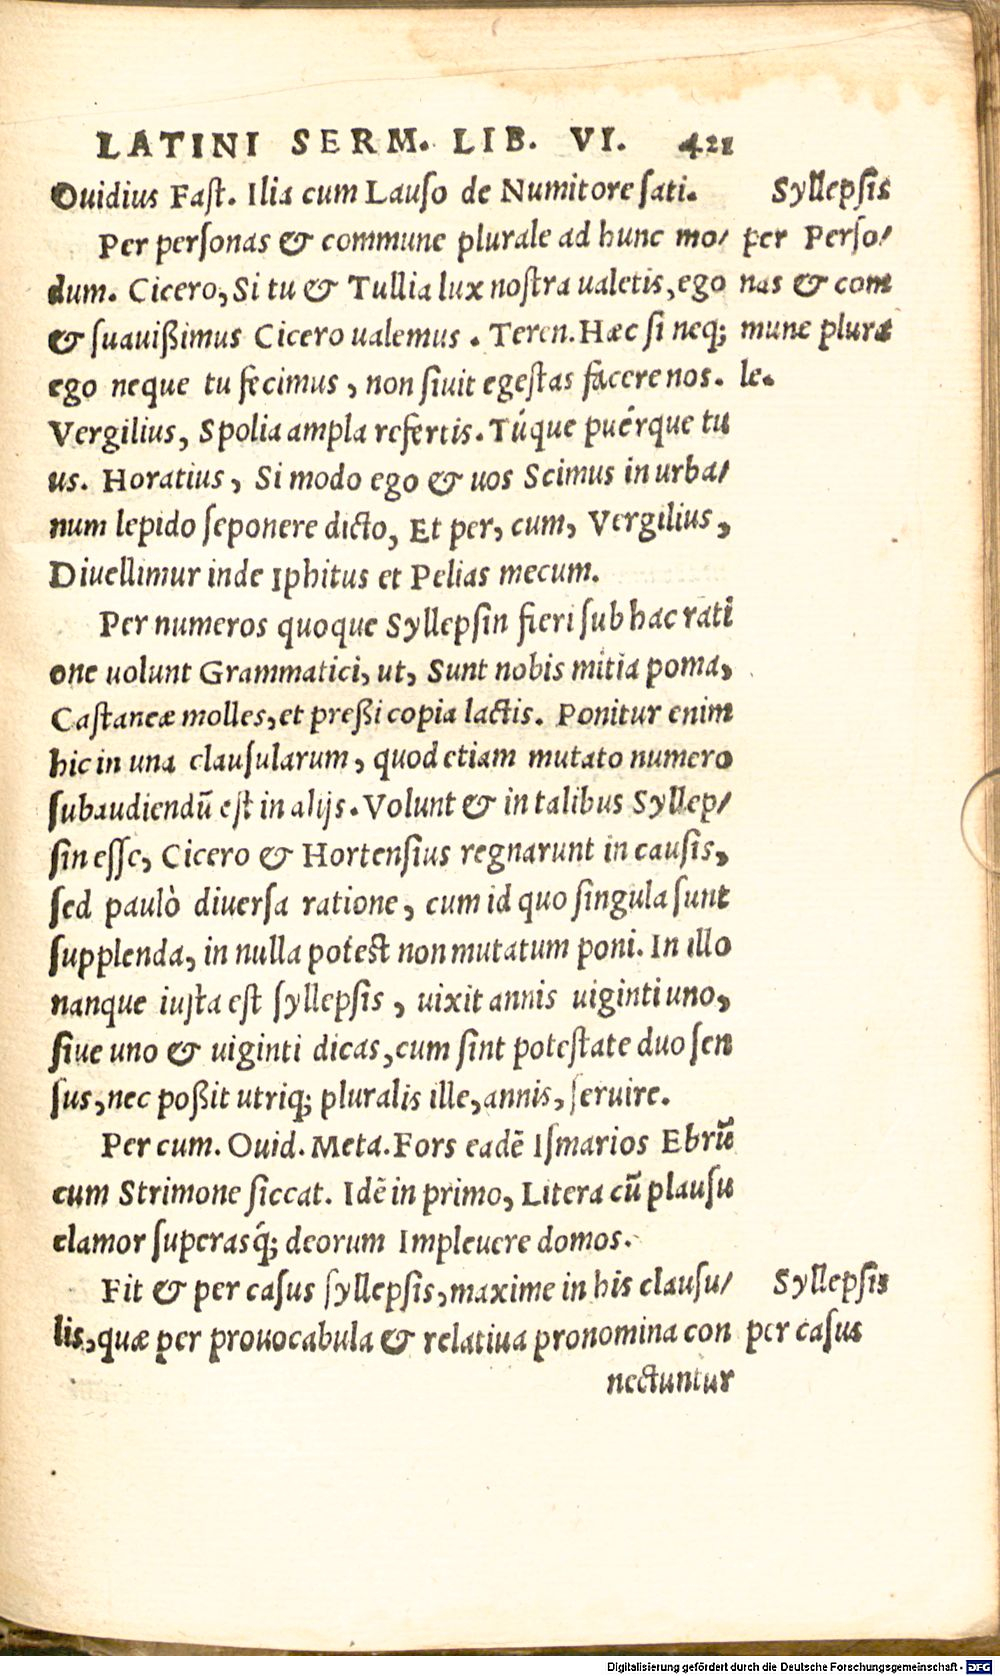 LATINI SERM. LIB. VI. 421
Ouidius Fast. Ilia cum Lauso de Numitore sati.
Syllepsis
Per personas & commune plurale ad hunc mo/
per Perso/
dum. Cicero, Si tu & Tullia lux nostra ualetis, ego
nas & com
& suauißimus Cicero ualemus. Teren. Hæc si neq;
mune plura
ego neque tu fecimus, non siuit egestas facere nos.
le.
Vergilius, Spolia ampla refertis. Túque puérque tu
us. Horatius, Si modo ego & uos Scimus in urba/
num lepido seponere dicto, Et per, cum, Vergilius,
Diuellimur inde Iphitus et Pelias mecum.
Per numeros quoque Syllepsin fieri sub hac rati
one uolunt Grammatici, ut, Sunt nobis mitia poma,
Castaneæ molles, et preßi copia lactis. Ponitur enim
hic in una clausularum, quod etiam mutato numero
subaudiendū est in alijs. Volunt & in talibus Syllep/
sin esse, Cicero & Hortensius regnarunt in causis,
sed paulò diuersa ratione, cum id quo singula sunt
supplenda, in nulla potest non mutatum poni. In illo
nanque iusta est syllepsis, uixit annis uiginti uno,
siue uno & uiginti dicas, cum sint potestate duo sen
sus, nec poßit utriq; pluralis ille, annis, seruire.
Per cum. Ouid. Meta. Fors eadē Ismarios Ebrū
cum Strimone siccat. Idē in primo, Litera cū plausu
clamor superasq́; deorum Impleuere domos.
Fit & per casus syllepsis, maxime in his clausu/
Syllepsis
lis, quæ per prouocabula & relatiua pronomina con
per casus
nectuntur
Digitalisierung gefördert durch die Deutsche Forschungsgemeinschaft - DFG